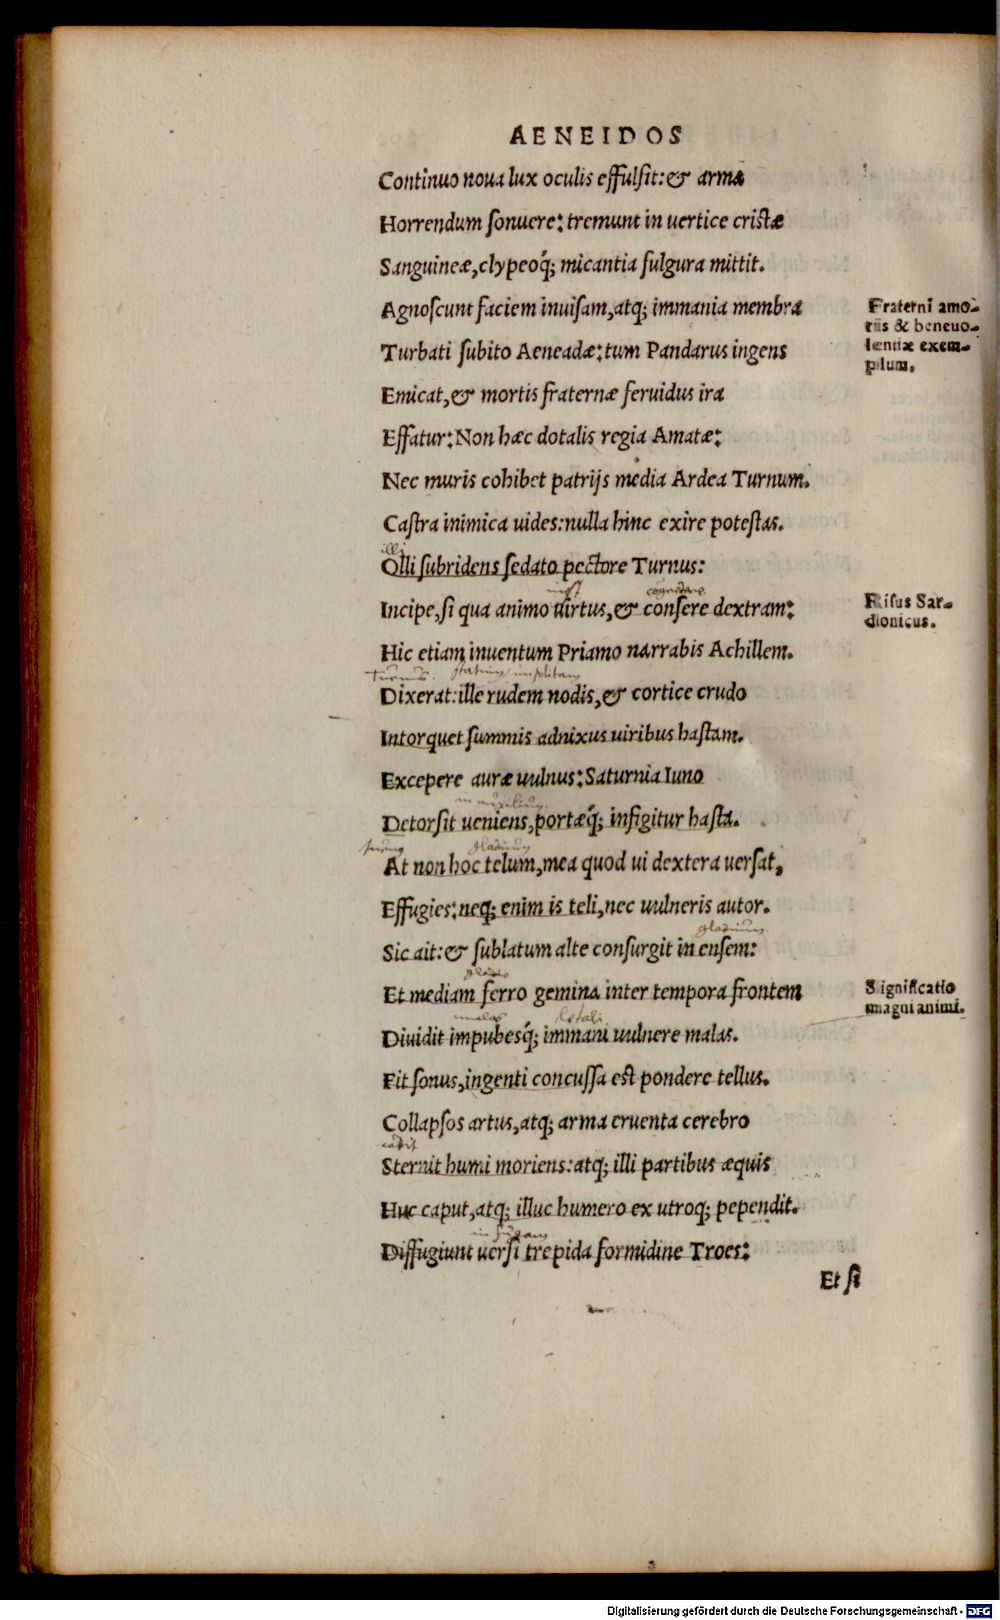 AENEIDOS
Continuo noua lux oculis effulſit: & arma
Horrendum ſonuere: tremunt in uertice criſtæ
Sanguineæ, clypeoq́; micantia fulgura mittit.
Agnoſcunt faciem inuiſam, atq; immania membra
Fraterni amo-
ris & beneuo-
lentiæ exem-
plum.
Turbati ſubito Aeneadæ: tum Pandarus ingens
Emicat, & mortis fraternæ feruidus ira
Effatur: Non hæc dotalis regia Amatæ:
Nec muris cohibet patrijs media Ardea Turnum.
Caſtra inimica uides: nulla hinc exire poteſtas.
illi
Olli ſubridens ſedato pectore Turnus:
Incipe, ſi qua animo uirtus, & conſere dextram:
Riſus Sar-
dionicus.
Hic etiam inuentum Priamo narrabis Achillem.
Turnus.
Dixerat: ille rudem nodis, & cortice crudo
Intorquet ſummis adnixus uiribus haſtam.
Excepere auræ uulnus: Saturnia Iuno
in auxilium
Detorſit ueniens, portæq́; infigitur haſta.
gladium
At non hoc telum, mea quod ui dextera uerſat,
Effugies: neq; enim is teli, nec uulneris autor.
gladium
Sic ait: & ſublatum alte conſurgit in enſem:
gladio
Et mediam ferro gemina inter tempora frontem
Significatio
magni animi.
malas letali
Diuidit impubesq́; immani uulnere malas.
Fit ſonus, ingenti concuſſa eſt pondere tellus.
Collapſos artus, atq; arma cruenta cerebro
cadit
Sternit humi moriens: atq; illi partibus æquis
Huc caput, atq; illuc humero ex utroq; pependit.
in fugam
Diffugiunt uerſi trepida formidine Troes:
Et ſi
Digitalisierung gefördert durch die Deutsche Forschungsgemeinschaft - DFG